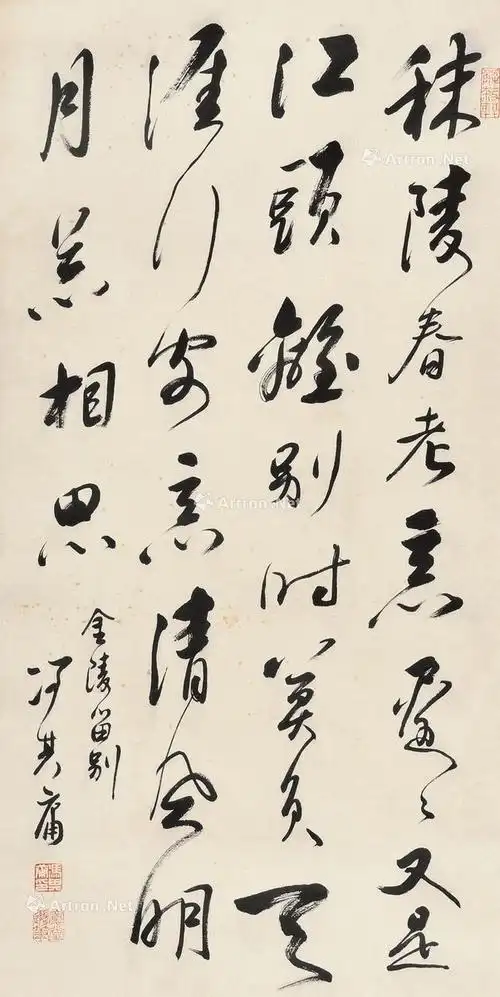 秣陵春老意遲々又是
江頭離別时莫負天
涯行客意清風明
月共相思
金陵留別
馮其庸
Artron.Net
Artron.Net
Artron.Net